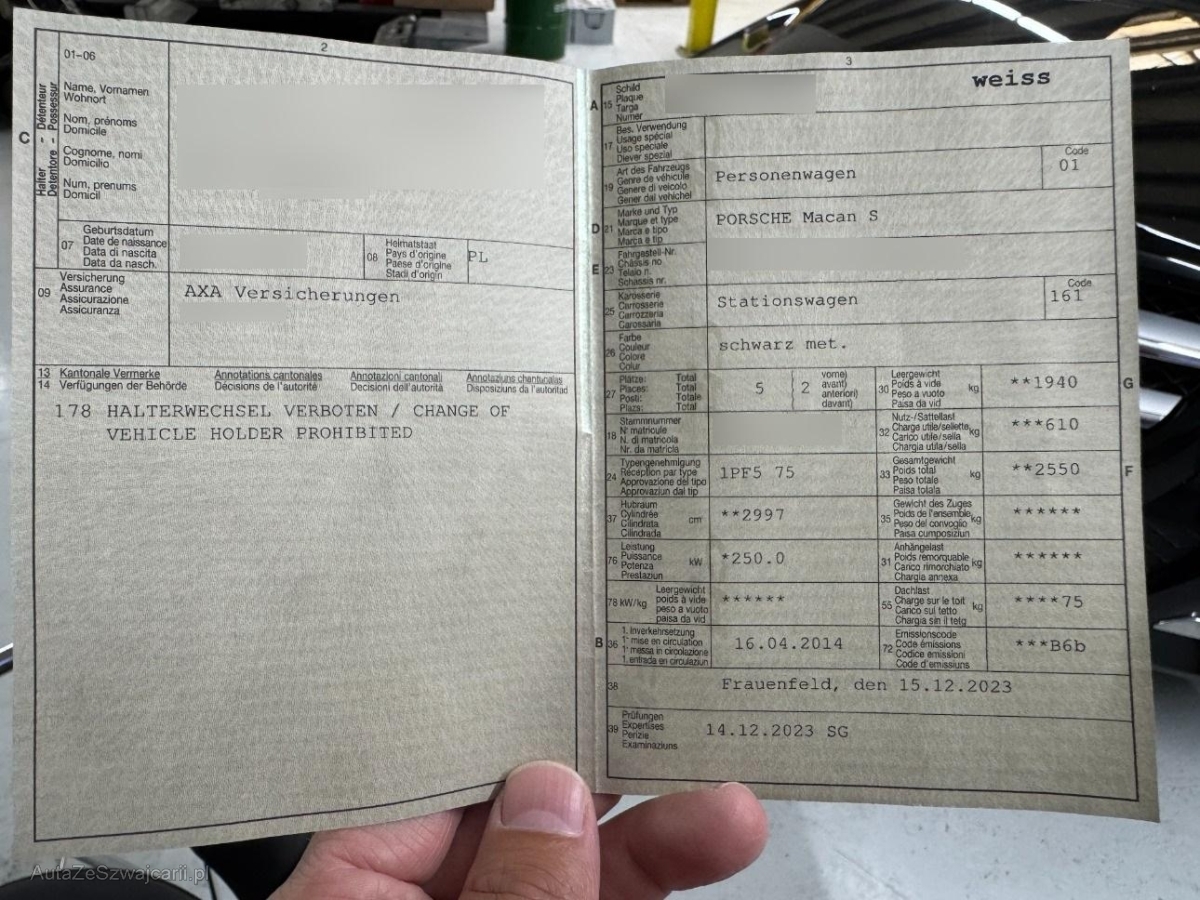 2
C
Halter - Détenteur
Detentore - Possessur
01-06
Name, Vornamen
Wohnort
Nom, prénoms
Domicile
Cognome, nomi
Domicilio
Num, prenums
Domicil
07
Geburtsdatum
Date de naissance
Data di nascita
Data da nasch.
08
Heimatstaat
Pays d'origine
Paese d'origine
Stadi d'origin
PL
09
Versicherung
Assurance
Assicurazione
Assicuranza
AXA Versicherungen
13 Kantonale Vermerke Annotations cantonales Annotazioni cantonali Annotaziuns chantunalas
14 Verfügungen der Behörde Décisions de l'autorité Decisioni dell'autorità Disposiziuns da l'autoritad
178 HALTERWECHSEL VERBOTEN / CHANGE OF
VEHICLE HOLDER PROHIBITED
3
A 15
Schild
Plaque
Targa
Numer
weiss
17
Bes. Verwendung
Usage spécial
Uso speciale
Diever spezial
19
Art des Fahrzeugs
Genre de véhicule
Genere di veicolo
Gener dal vehichel
Personenwagen
Code
01
D 21
Marke und Typ
Marque et type
Marca e tipo
Marca e tip
PORSCHE Macan S
E 23
Fahrgestell-Nr.
Châssis no
Telaio n.
Schassis nr.
25
Karosserie
Carrosserie
Carrozzeria
Carossaria
Stationswagen
Code
161
26
Farbe
Couleur
Colore
Colur
schwarz met.
27
Plätze: Total
Places: Total
Posti: Totale
Plazs: Total
5 2
vorne)
avant)
anteriori)
davant)
30
Leergewicht
Poids à vide
Peso a vuoto
Paisa da vid
kg
**1940
G
18
Stammnummer
N° matricule
N. di matricola
Nr. da matricla
32
Nutz-/Sattellast
Charge utile/sellette
Carico utile/sella
Chargia utila/sella
kg
***610
24
Typengenehmigung
Réception par type
Approvazione del tipo
Approvaziun dal tip
1PF5 75
33
Gesamtgewicht
Poids total
Peso totale
Paisa totala
kg
**2550
F
37
Hubraum
Cylindrée
Cilindrata
Cilindrada
cm
**2997
35
Gewicht des Zuges
Poids de l'ensemble
Peso del convoglio
Paisa cumposiziun
kg
******
76
Leistung
Puissance
Potenza
Prestaziun
kW
*250.0
31
Anhängelast
Poids remorquable
Carico rimorchiato
Chargia annexa
kg
******
78 kW/kg
Leergewicht
poids à vide
peso a vuoto
paisa da vid
******
55
Dachlast
Charge sur le toit
Carico sul tetto
Chargia sin il tetg
kg
****75
B 36
1. Inverkehrsetzung
1° mise en circulation
1° messa in circolazione
1. entrada en circulaziun
16.04.2014
72
Emissionscode
Code émissions
Codice emissioni
Code d'emissiuns
***B6b
38
Frauenfeld, den 15.12.2023
39
Prüfungen
Expertises
Perizie
Examinaziuns
14.12.2023 SG
AutaZeSzwajcarii.pl